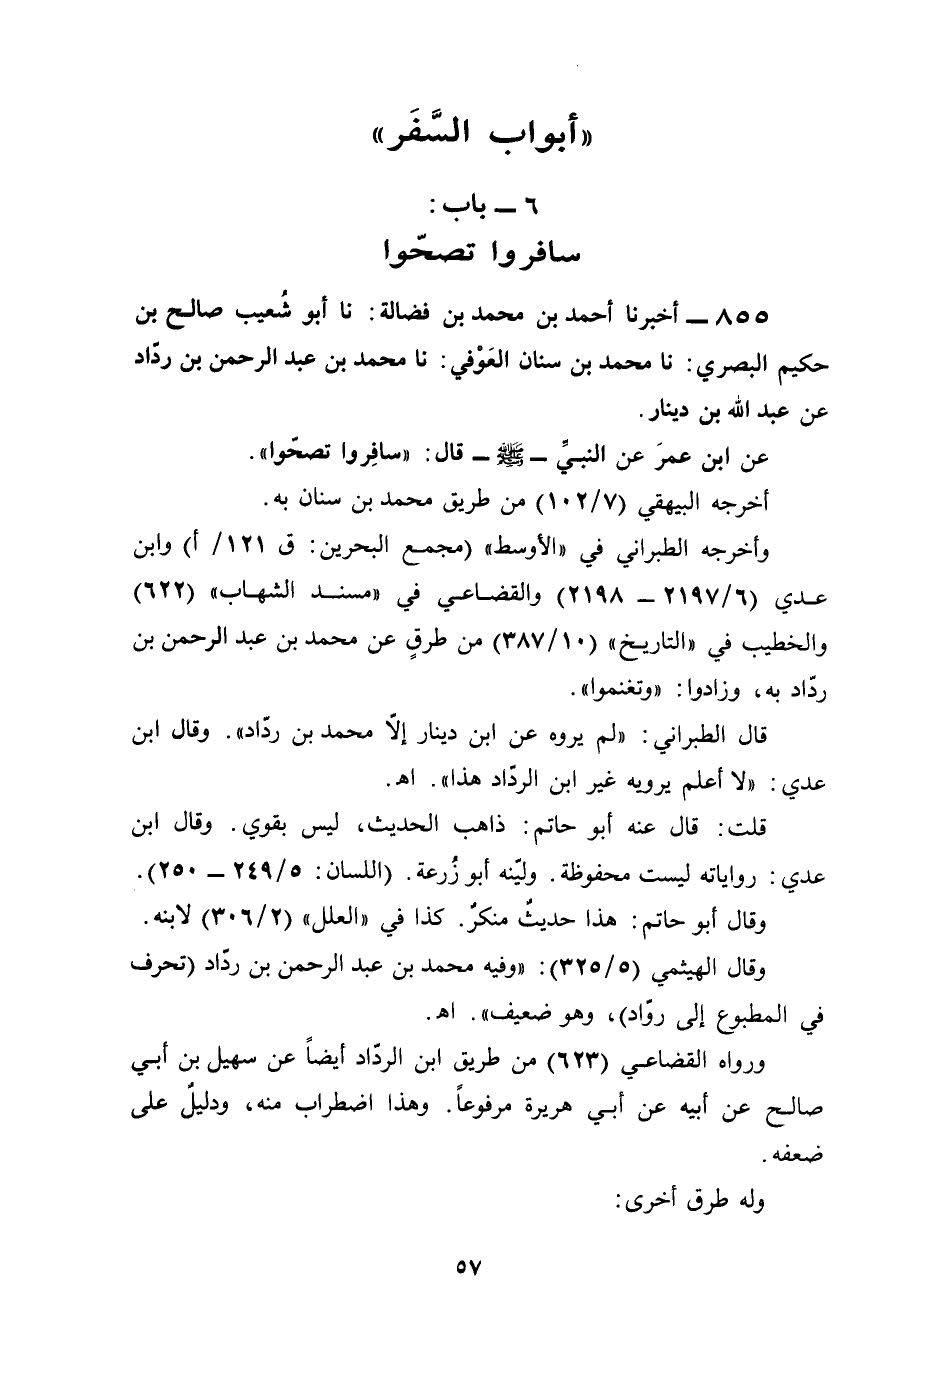 «أبواب السَّفَر»
٦ ــ باب :
سافروا تصحّوا
٨٥٥ ــ أخبرنا أحمد بن محمد بن فضالة: نا أبو شُعيب صالح بن
حكيم البصري: نا محمد بن سنان العَوْفي: نا محمد بن عبد الرحمن بن ردّاد
عن عبد الله بن دينار.
عن ابن عمرَ عن النبيِّ ــ ﷺ ــ قال: «سافِروا تصحّوا».
أخرجه البيهقي (١٠٢/٧) من طريق محمد بن سنان به.
وأخرجه الطبراني في «الأوسط» (مجمع البحرين: ق ١٢١/ أ) وابن
عدي (٢١٩٧/٦ ــ ٢١٩٨) والقضاعي في «مسند الشهاب» (٦٢٢)
والخطيب في «التاريخ» (٣٨٧/١٠) من طرقٍ عن محمد بن عبد الرحمن بن
ردّاد به، وزادوا: «وتغنموا».
قال الطبراني: «لم يروه عن ابن دينار إلّا محمد بن ردّاد». وقال ابن
عدي: «لا أعلم يرويه غير ابن الردّاد هذا». اهـ.
قلت: قال عنه أبو حاتم: ذاهب الحديث، ليس بقوي. وقال ابن
عدي: رواياته ليست محفوظة. وليّنه أبو زُرعة. (اللسان: ٢٤٩/٥ ــ ٢٥٠).
وقال أبو حاتم: هذا حديثٌ منكرٌ. كذا في «العلل» (٣٠٦/٢) لابنه.
وقال الهيثمي (٣٢٥/٥): «وفيه محمد بن عبد الرحمن بن ردّاد (تحرف
في المطبوع إلى روّاد)، وهو ضعيف». اهـ.
ورواه القضاعي (٦٢٣) من طريق ابن الردّاد أيضاً عن سهيل بن أبي
صالح عن أبيه عن أبي هريرة مرفوعاً. وهذا اضطراب منه، ودليلٌ على
ضعفه.
وله طرق أخرى:
٥٧